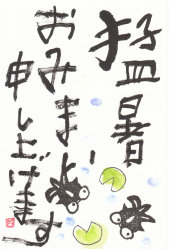 猛暑
おみまい
申し上げます